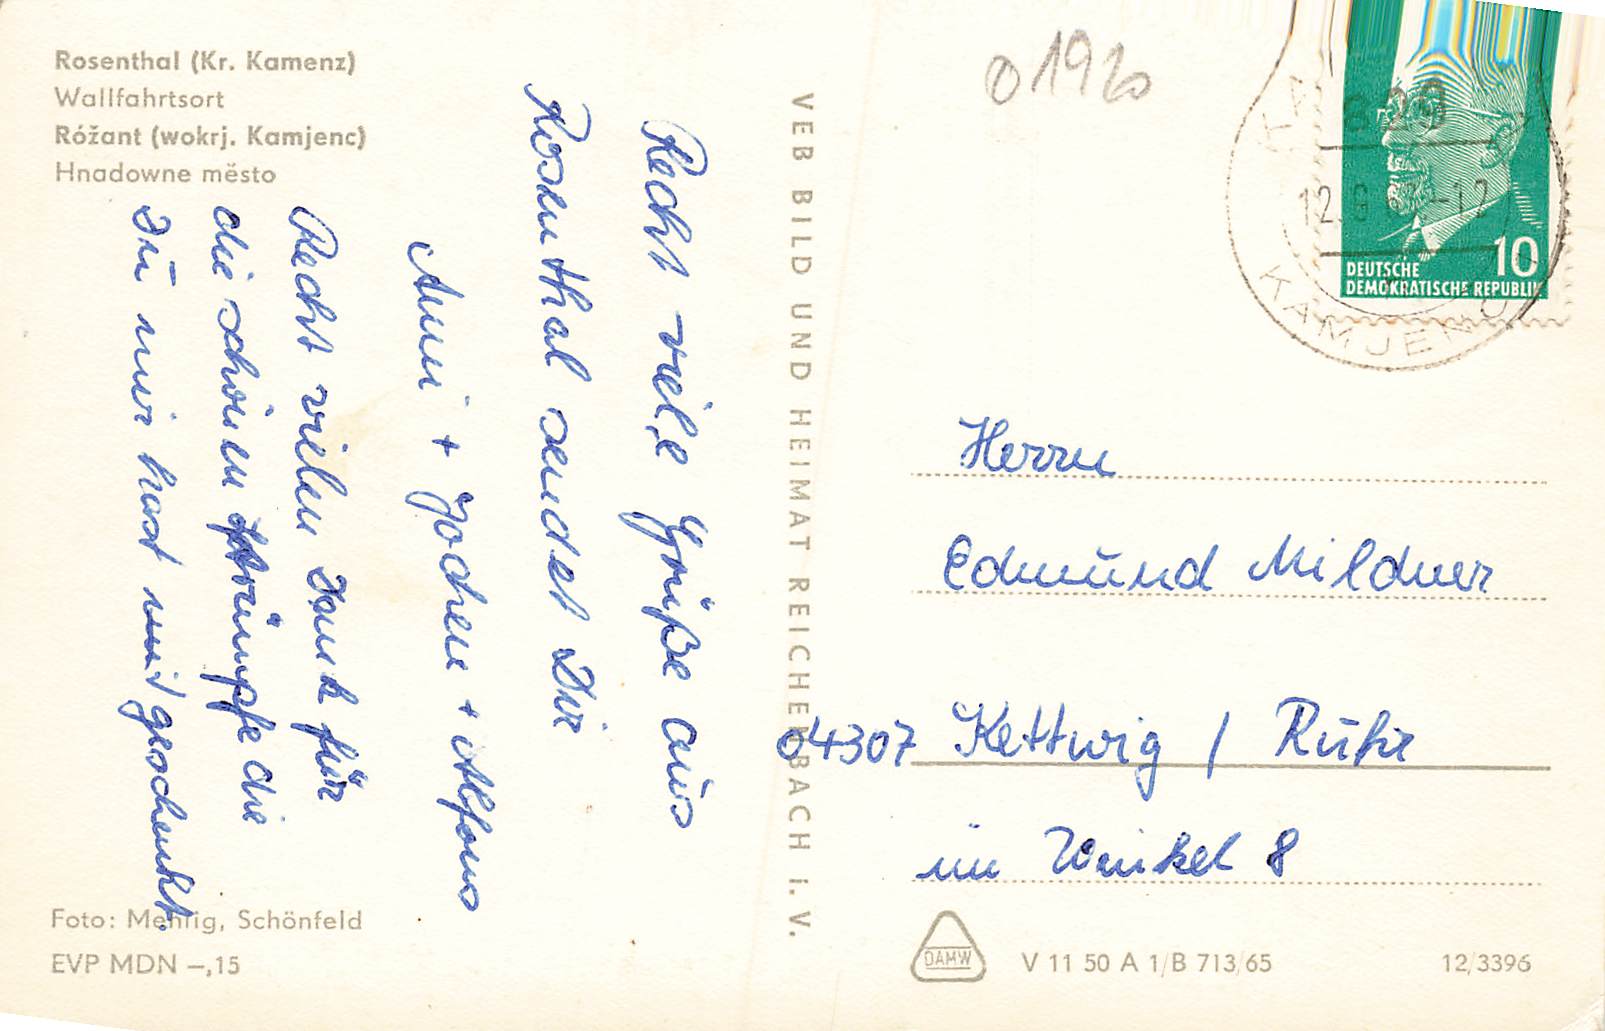 Rosenthal (Kr. Kamenz)
Wallfahrtsort
Róžant (wokrj. Kamjenc)
Hnadowne město
Recht viele Grüße aus
Rosenthal sendet Dir
Anni + Jochen + Alfons
Recht vielen Dank für
die schönen Strümpfe die
Du mir hast mid geschenkt.
Foto: Mehlig, Schönfeld
EVP MDN –,15
VEB BILD UND HEIMAT REICHENBACH I. V.
01920
829
12.9
-12
KAMJENC
10
DEUTSCHE
DEMOKRATISCHE REPUBLIK
Herrn
Edmund Mildner
04307 Kettwig / Ruhr
im Winkel 8
DAMW
V 11 50 A 1/B 713/65
12/3396